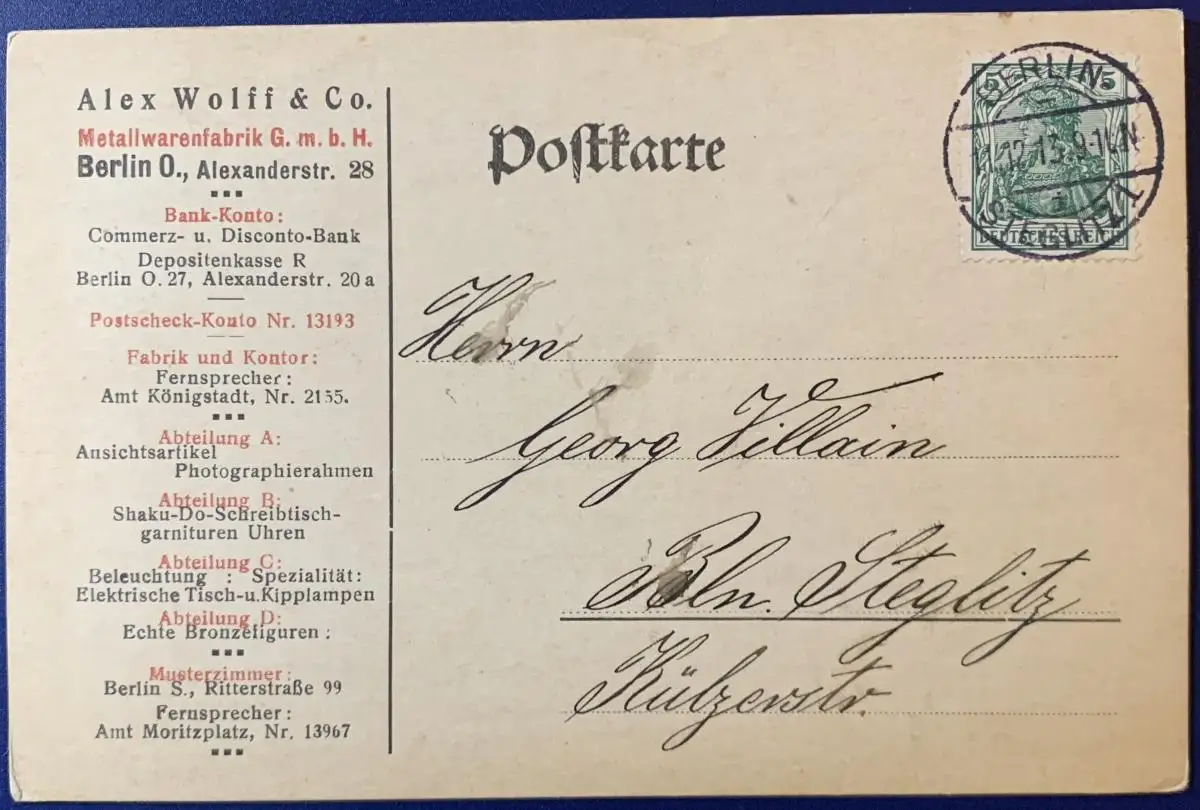 Alex Wolff & Co.
Metallwarenfabrik G. m. b. H.
Berlin O., Alexanderstr. 28
Bank-Konto:
Commerz- u. Disconto-Bank
Depositenkasse R
Berlin O. 27, Alexanderstr. 20 a
Postscheck-Konto Nr. 13193
Fabrik und Kontor:
Fernsprecher:
Amt Königstadt, Nr. 2155.
Abteilung A:
Ansichtsartikel
Photographierahmen
Abteilung B:
Shaku-Do-Schreibtisch-
garnituren Uhren
Abteilung C:
Beleuchtung : Spezialität:
Elektrische Tisch-u. Kipplampen
Abteilung D:
Echte Bronzefiguren :
Musterzimmer:
Berlin S., Ritterstraße 99
Fernsprecher:
Amt Moritzplatz, Nr. 13967
Postkarte
5 5
DEUTSCHES REICH
BERLIN
12.13. 9-10N
STEGLITZ 1
Herrn
Georg Villain
Bln. Steglitz
Külzerstr.